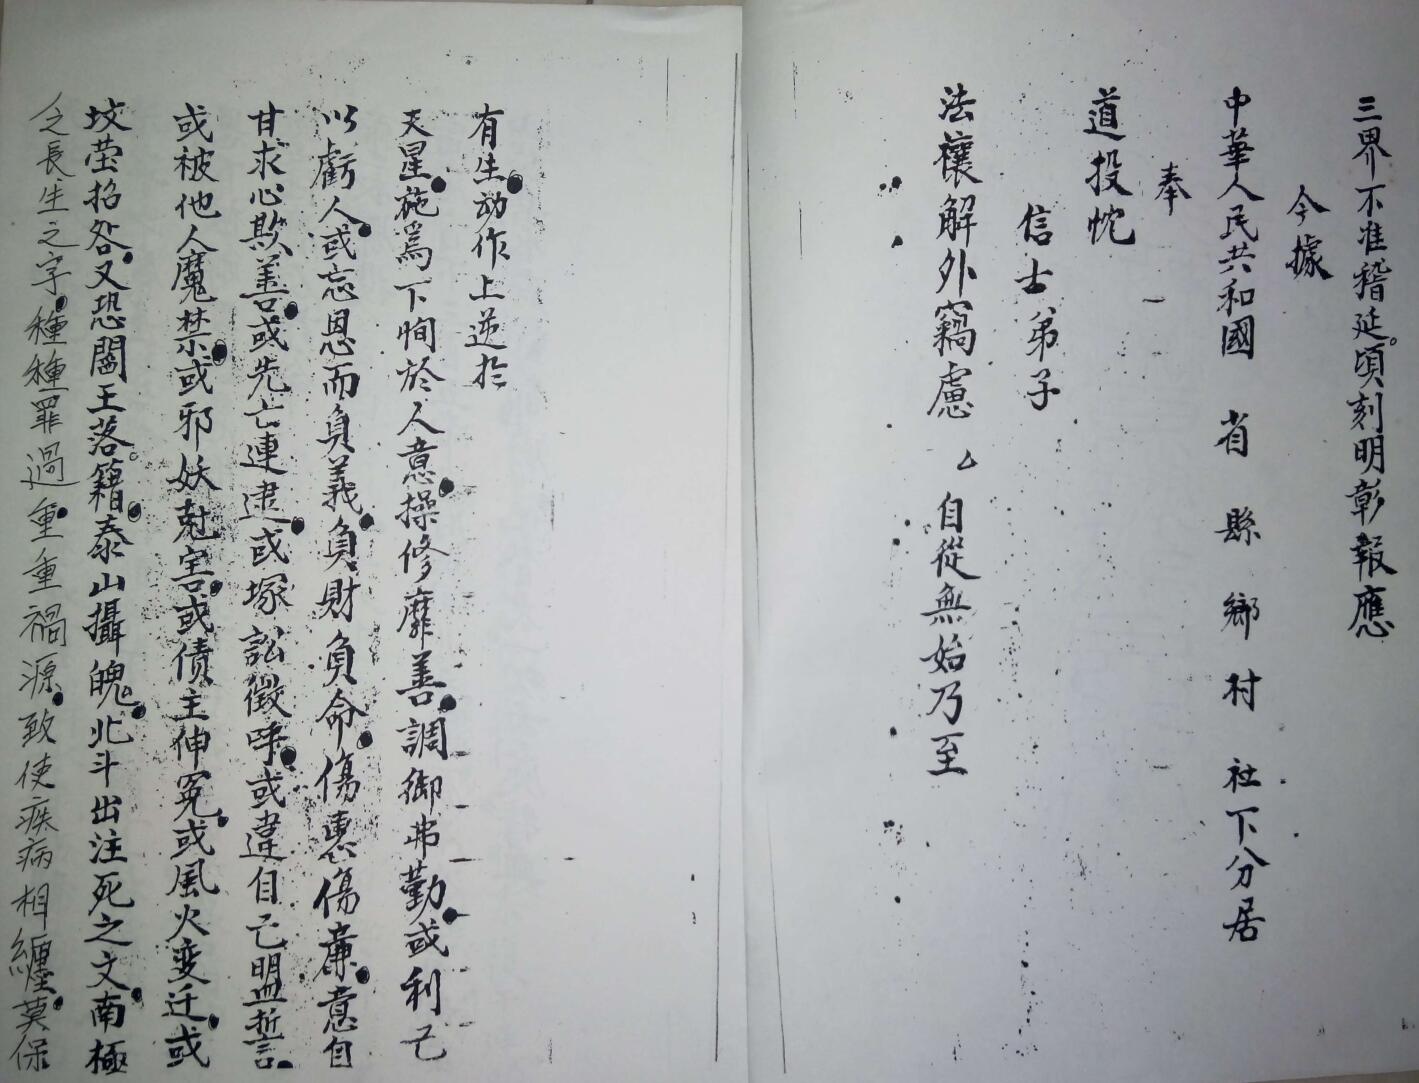 三界不准稽延。頃刻明彰報應
今據
中華人民共和國 省 縣 鄉 村 社下分居
奉
道投忱
信士弟子
法禳解外竊慮 厶 自從無始乃至
有生。动作上逆於
天星。施爲下恂於人意。操修靡善。調御弗勤。或利己
以虧人。或忘恩而負義。負財負命。傷惠傷廉。意自
甘求心欺善。或先亡連逮。或塚訟徵呼。或違自己盟誓言。
或被他人魔禁。或邪妖尅害。或債主伸冤。或風火变迁。或
坟茔招咎。又恐閻王落籍。泰山攝魄。北斗出注死之文。南極
仝長生之字。種種罪過。重重禍源。致使疾病相纏。莫保